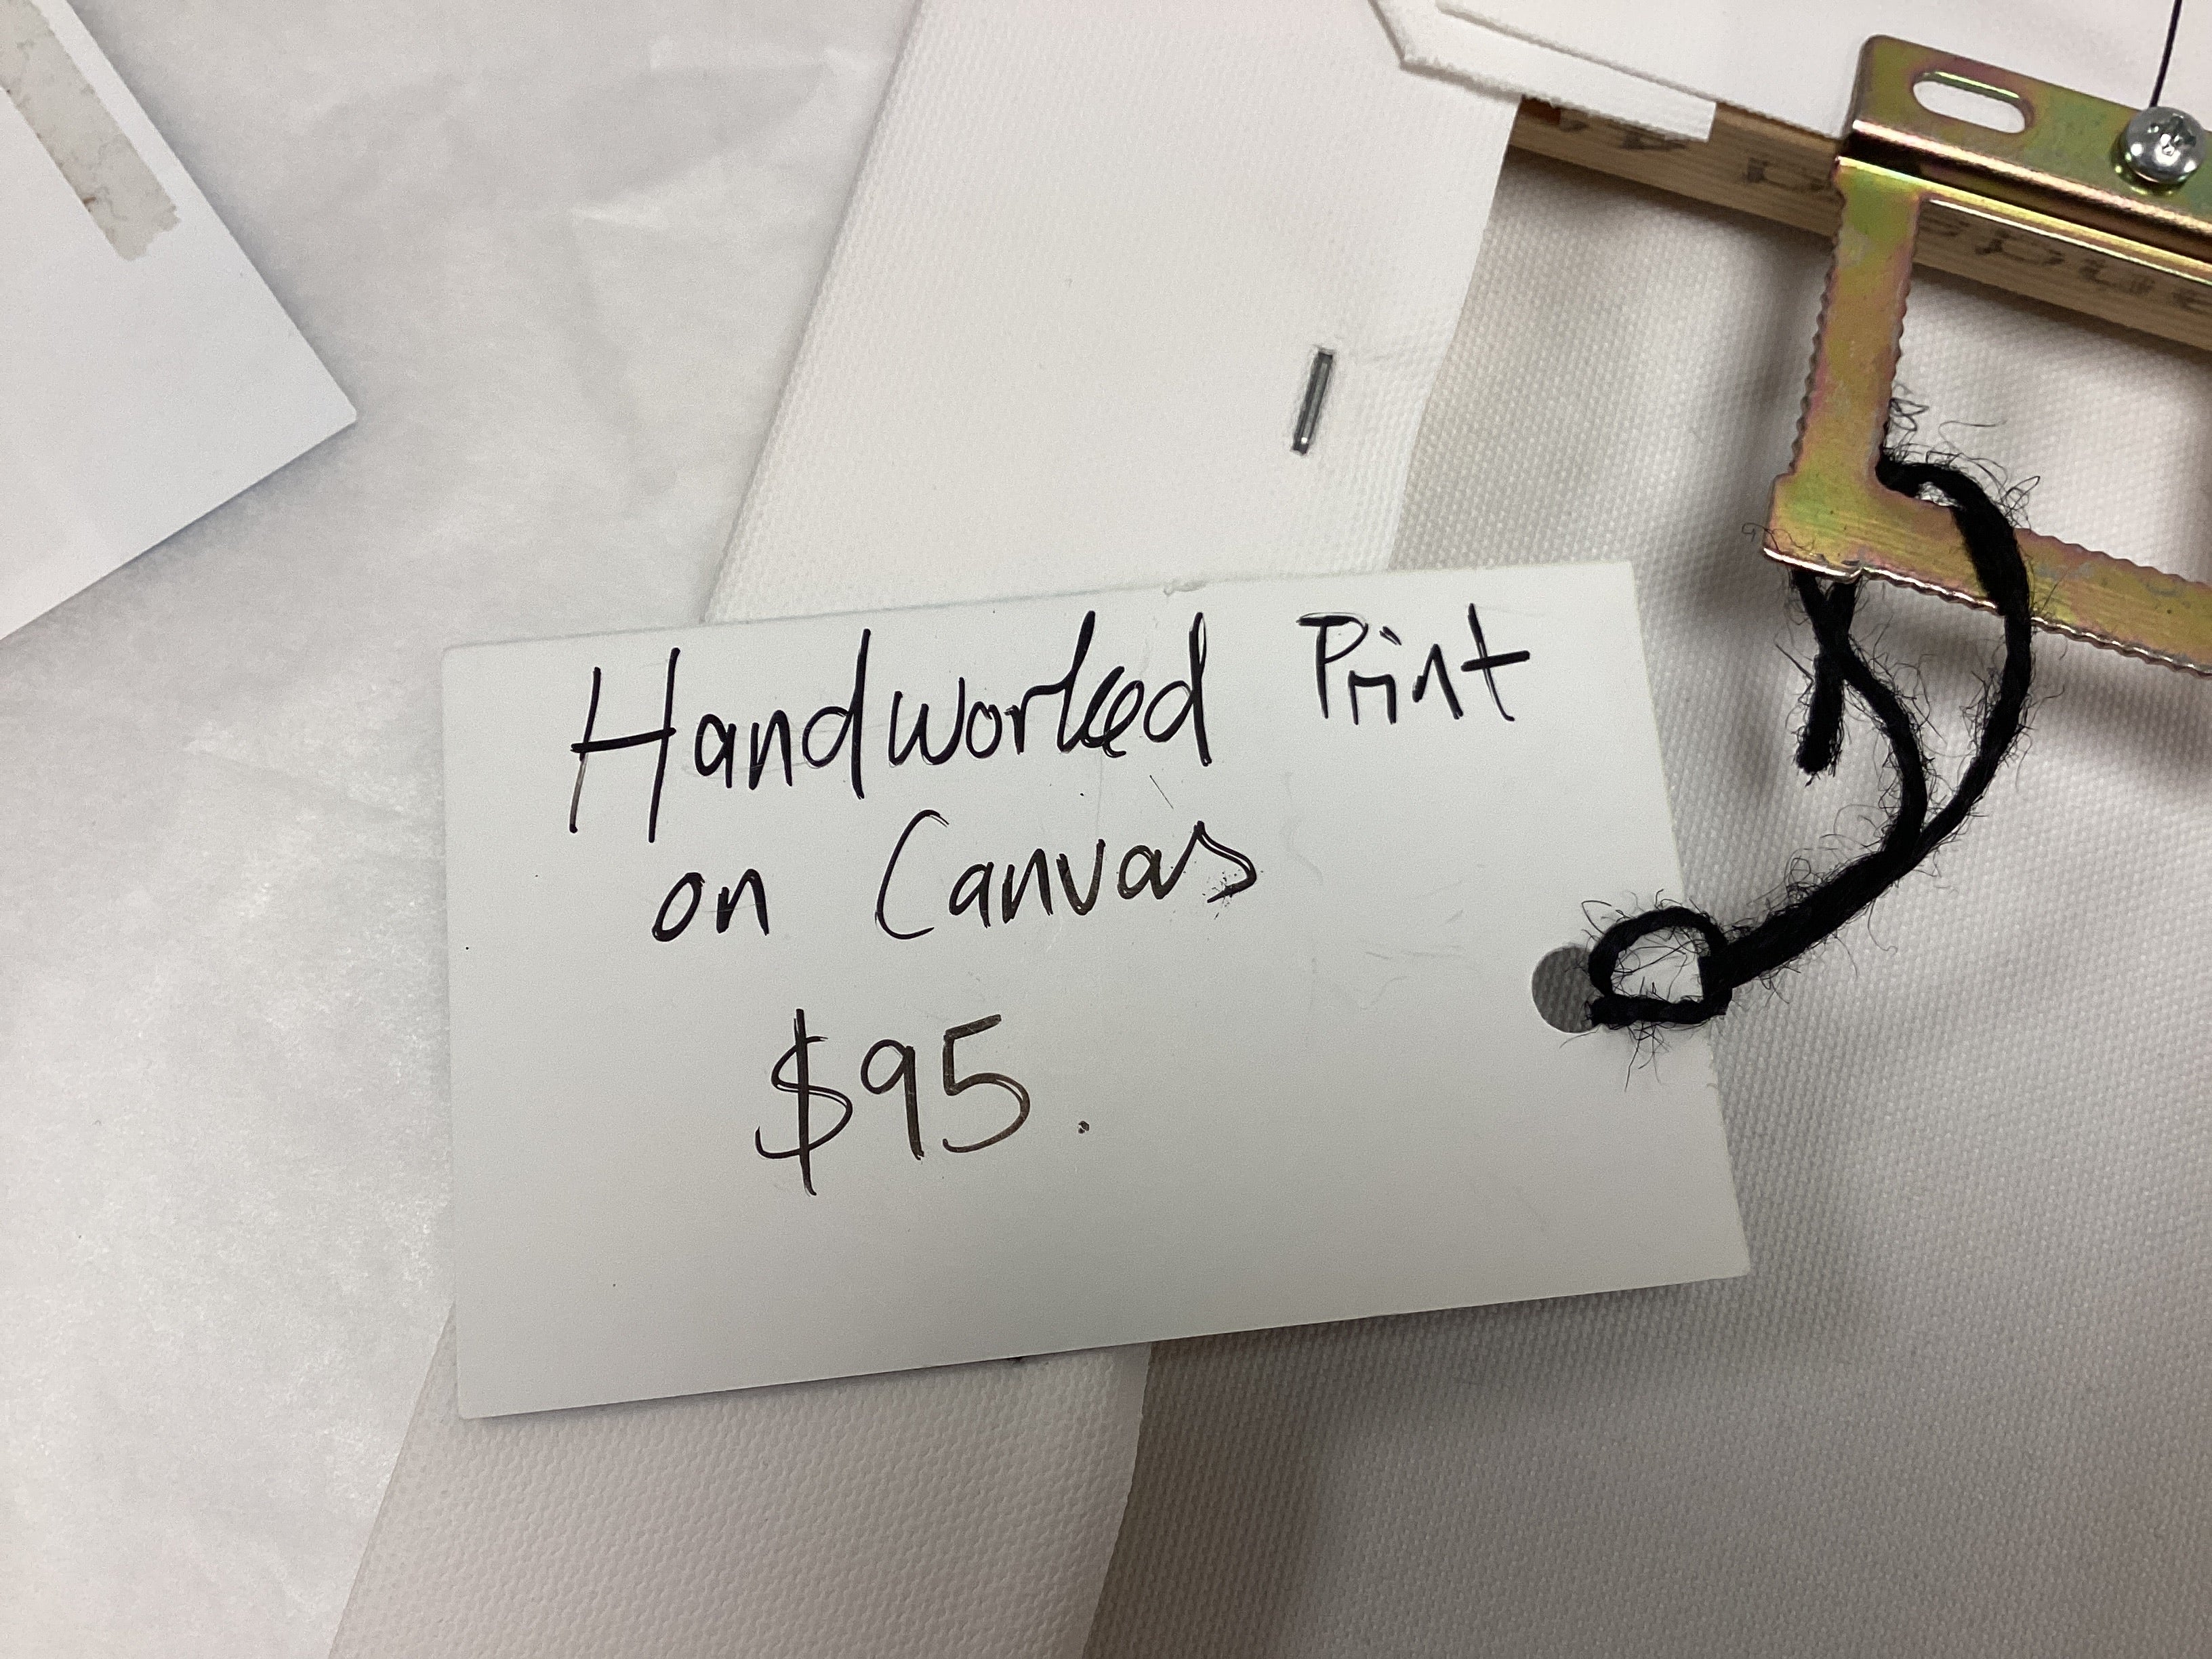 Handworked Print
on Canvas
$95.